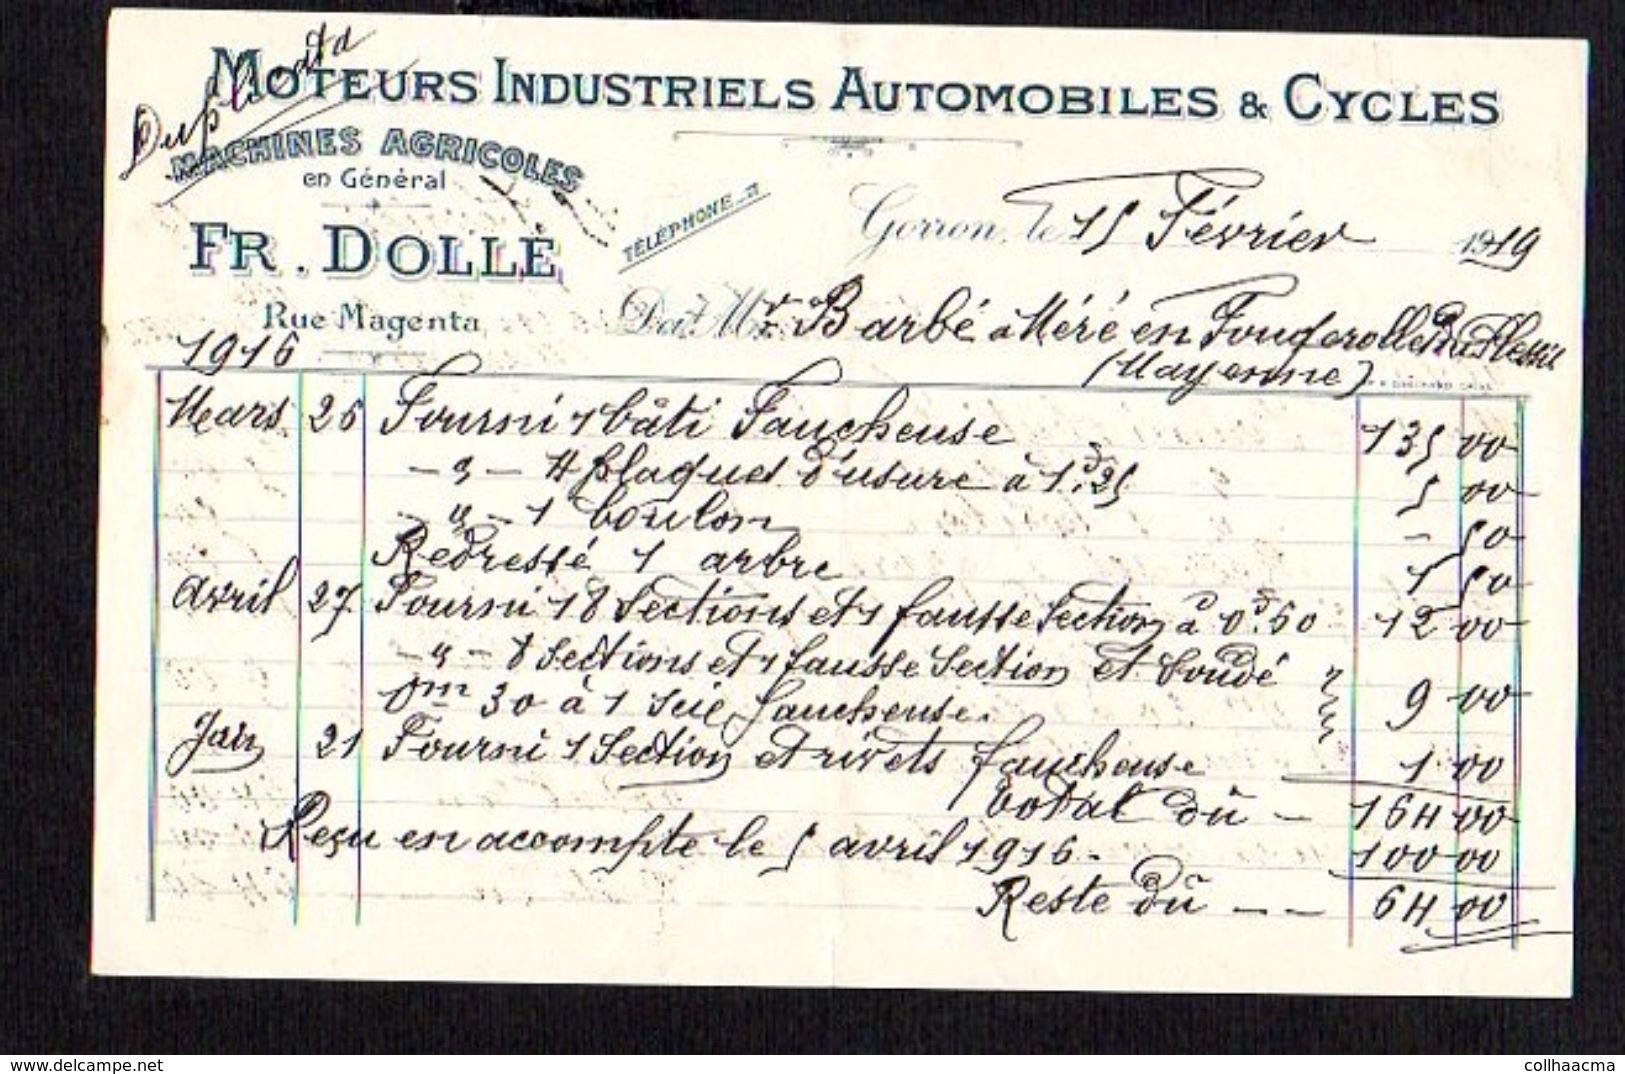 Duplicata
MOTEURS INDUSTRIELS AUTOMOBILES & CYCLES
MACHINES AGRICOLES
en Général
FR. DOLLÉ
Rue Magenta
TÉLÉPHONE
Gorron, le 15 Février 1919
Doit Mr Barbé à Méré en Fougerolles Du Plessis
(Mayenne)
1916
Mars 25 Fourni 1 bâti Faucheuse 135 00
- " - 4 plaques d'usure à 1.25 5 00
- " - 1 boulon - 50
Redressé 1 arbre 1 50
Avril 27 Fourni 18 Sections et 1 fausse Section à 0.60 12 00
- " - 8 Sections et 1 fausse Section et Soudé
0m 30 à 1 Scie faucheuse. 9 00
Juin 21 Fourni 1 Section et rivets faucheuse 1 00
Total dû - 164 00
Reçu en accompte le 5 avril 1916. 100 00
Reste dû - - 64 00
© delcampe.net
collhaacma